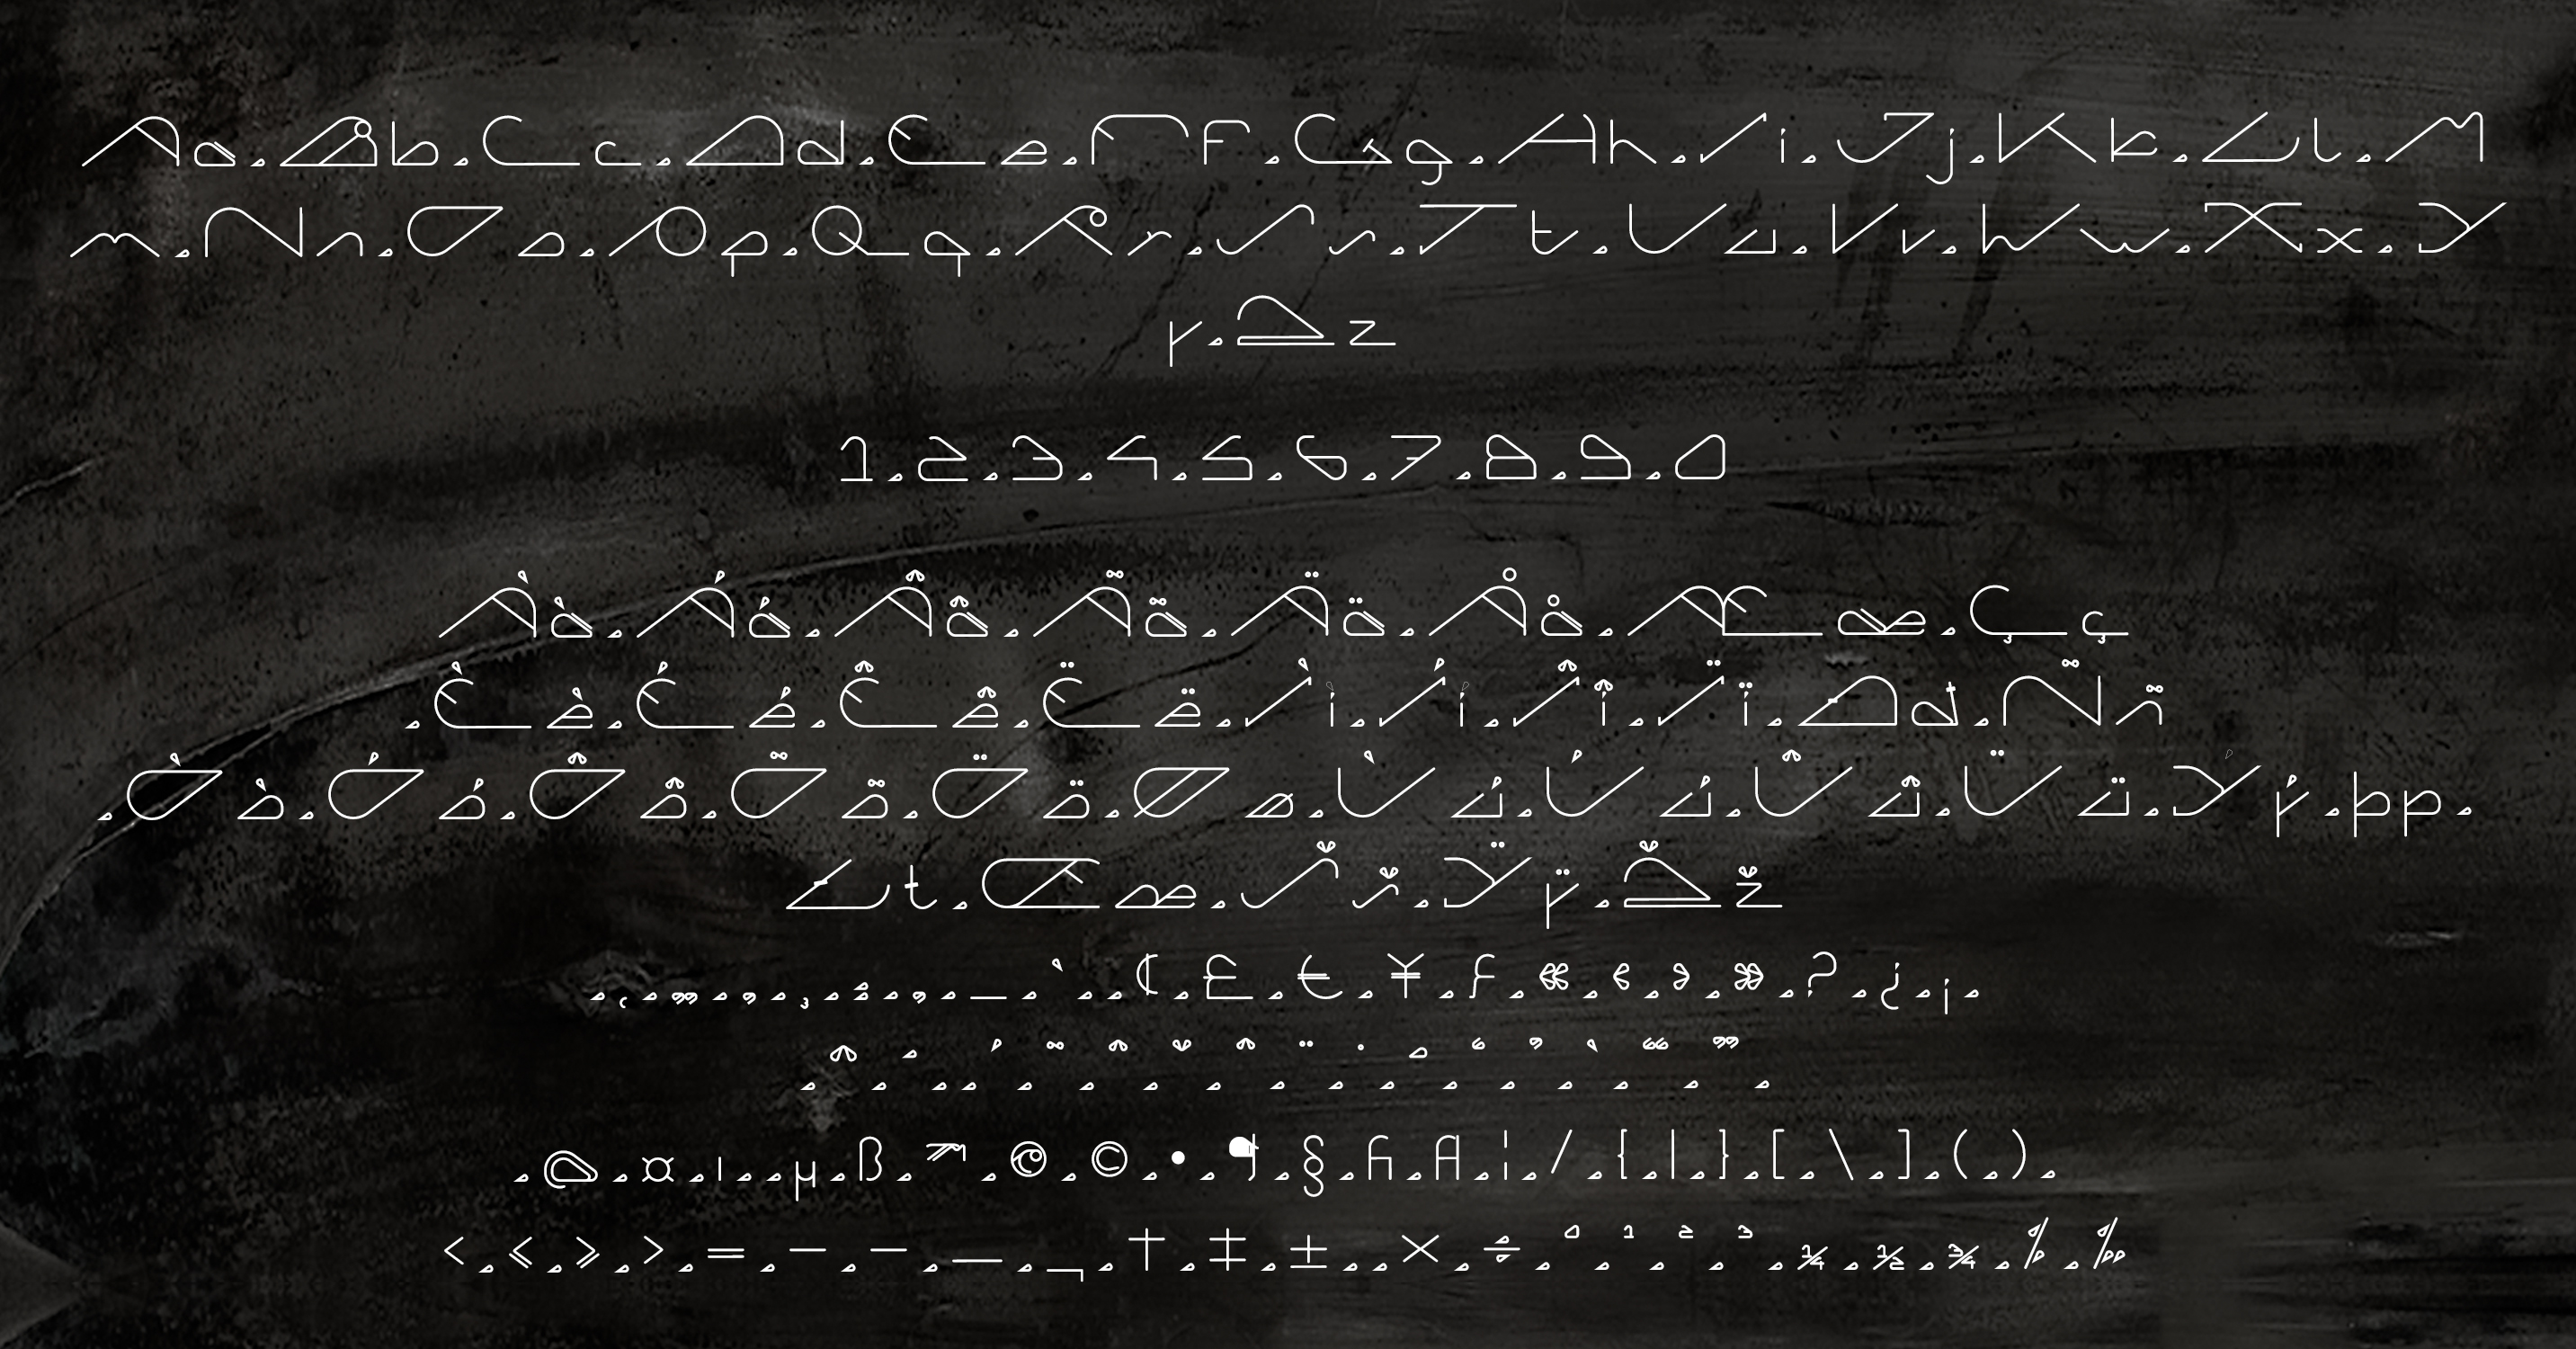 Aa.Bb.Cc.Dd.Ee.Ff.Gg.Hh.Ii.Jj.Kk.Ll.M
m.Nn.Oo.Pp.Qq.Rr.Ss.Tt.Uu.Vv.Ww.Xx.Y
y.Zz
1.2.3.4.5.6.7.8.9.0
Àà.Áá.Ââ.Ãã.Ää.Åå.Ææ.Çç
.Èè.Éé.Êê.Ëë.Ìì.Íí.Îî.Ïï.Ðð.Ññ
.Òò.Óó.Ôô.Õõ.Öö.Øø.Ùù.Úú.Ûû.Üü.Ýý.Þþ.
Łł.Œœ.Šš.Ÿÿ.Žž
¢.£.€.¥.ƒ.«.‹.›.».?.¿.¡.
¤.ı..µ.ß.™.®.©.•.¶.§
.¦./.{.|.}.[.\.].(.).
<.≪.≫.>.=.–.−.—.¬.†.‡.±..×.÷.⁰.¹.².³.¼.½.¾.%.‰